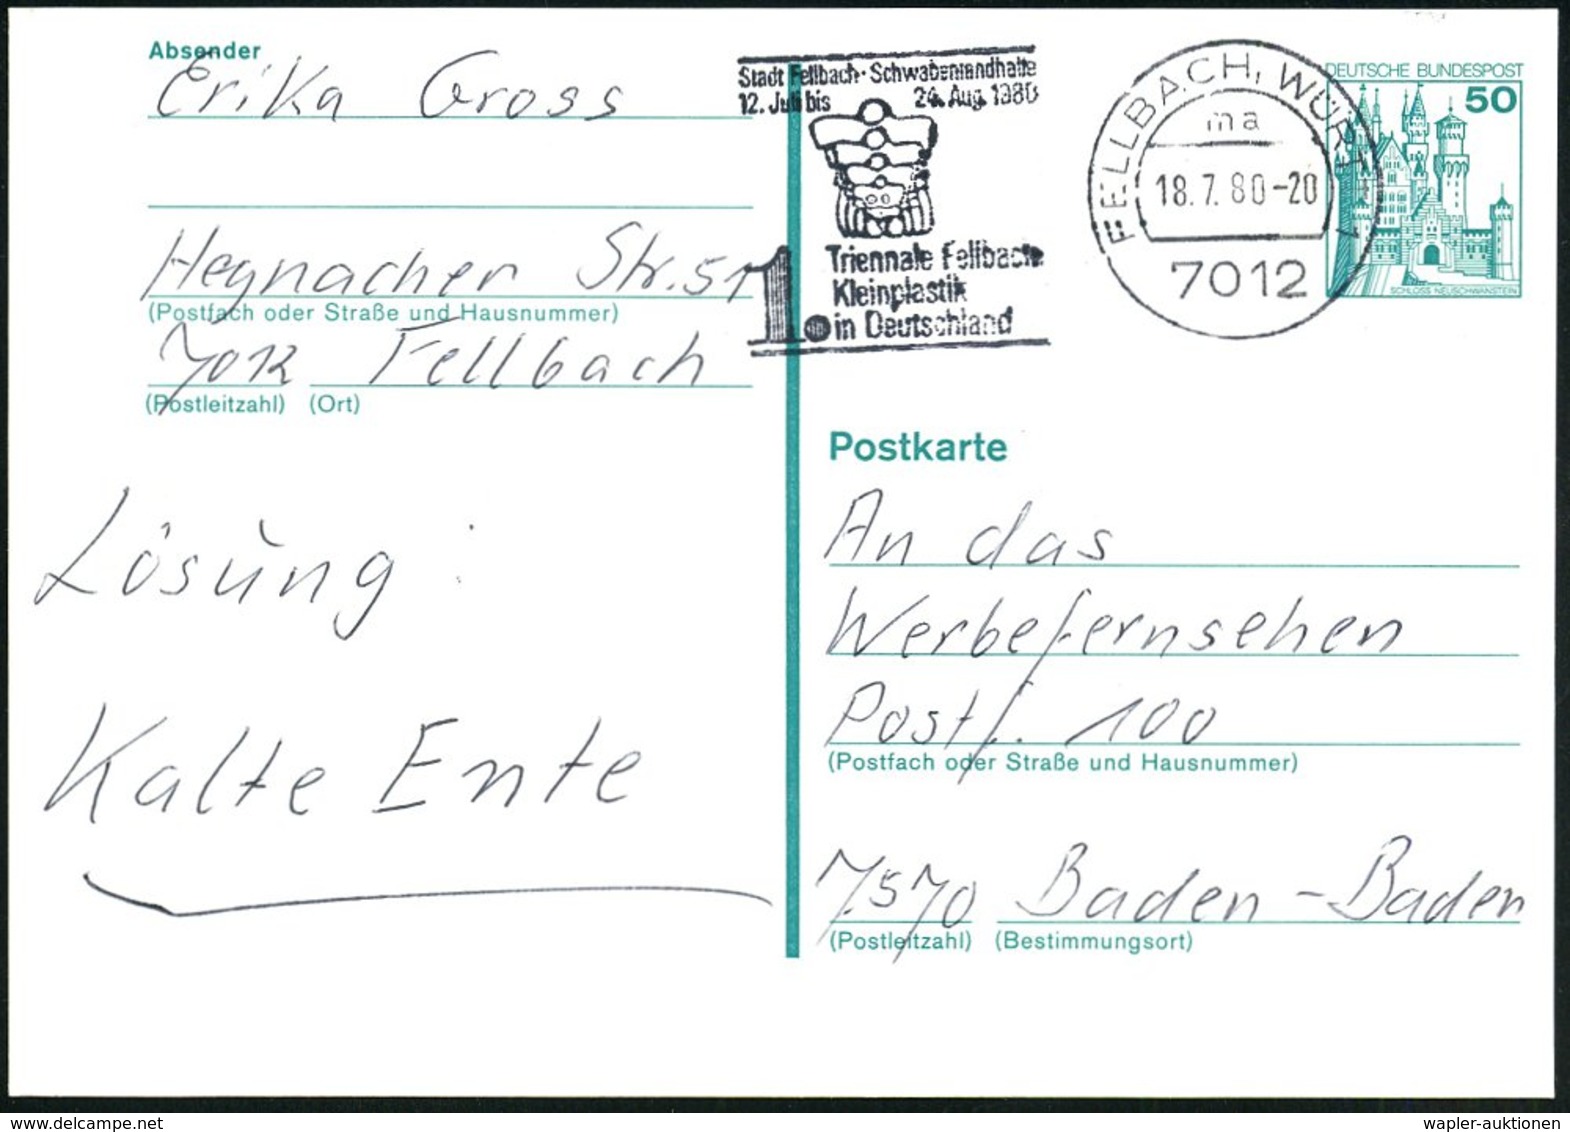 Absender
Erika Gross
Hegnacher Str. 51
(Postfach oder Straße und Hausnummer)
7012 Fellbach
(Postleitzahl) (Ort)
Lösung:
Kalte Ente
Stadt Fellbach · Schwabenlandhalle
12. Juli bis 24. Aug. 1980
Triennale Fellbach
Kleinplastik
1. in Deutschland
FELLBACH, WÜRTT 1
ma
18.7.80-20
7012
DEUTSCHE BUNDESPOST
50
SCHLOSS NEUSCHWANSTEIN
Postkarte
An das
Werbefernsehen
Postf. 100
(Postfach oder Straße und Hausnummer)
7570 Baden-Baden
(Postleitzahl) (Bestimmungsort)
delcampe.net
wapler-auktionen